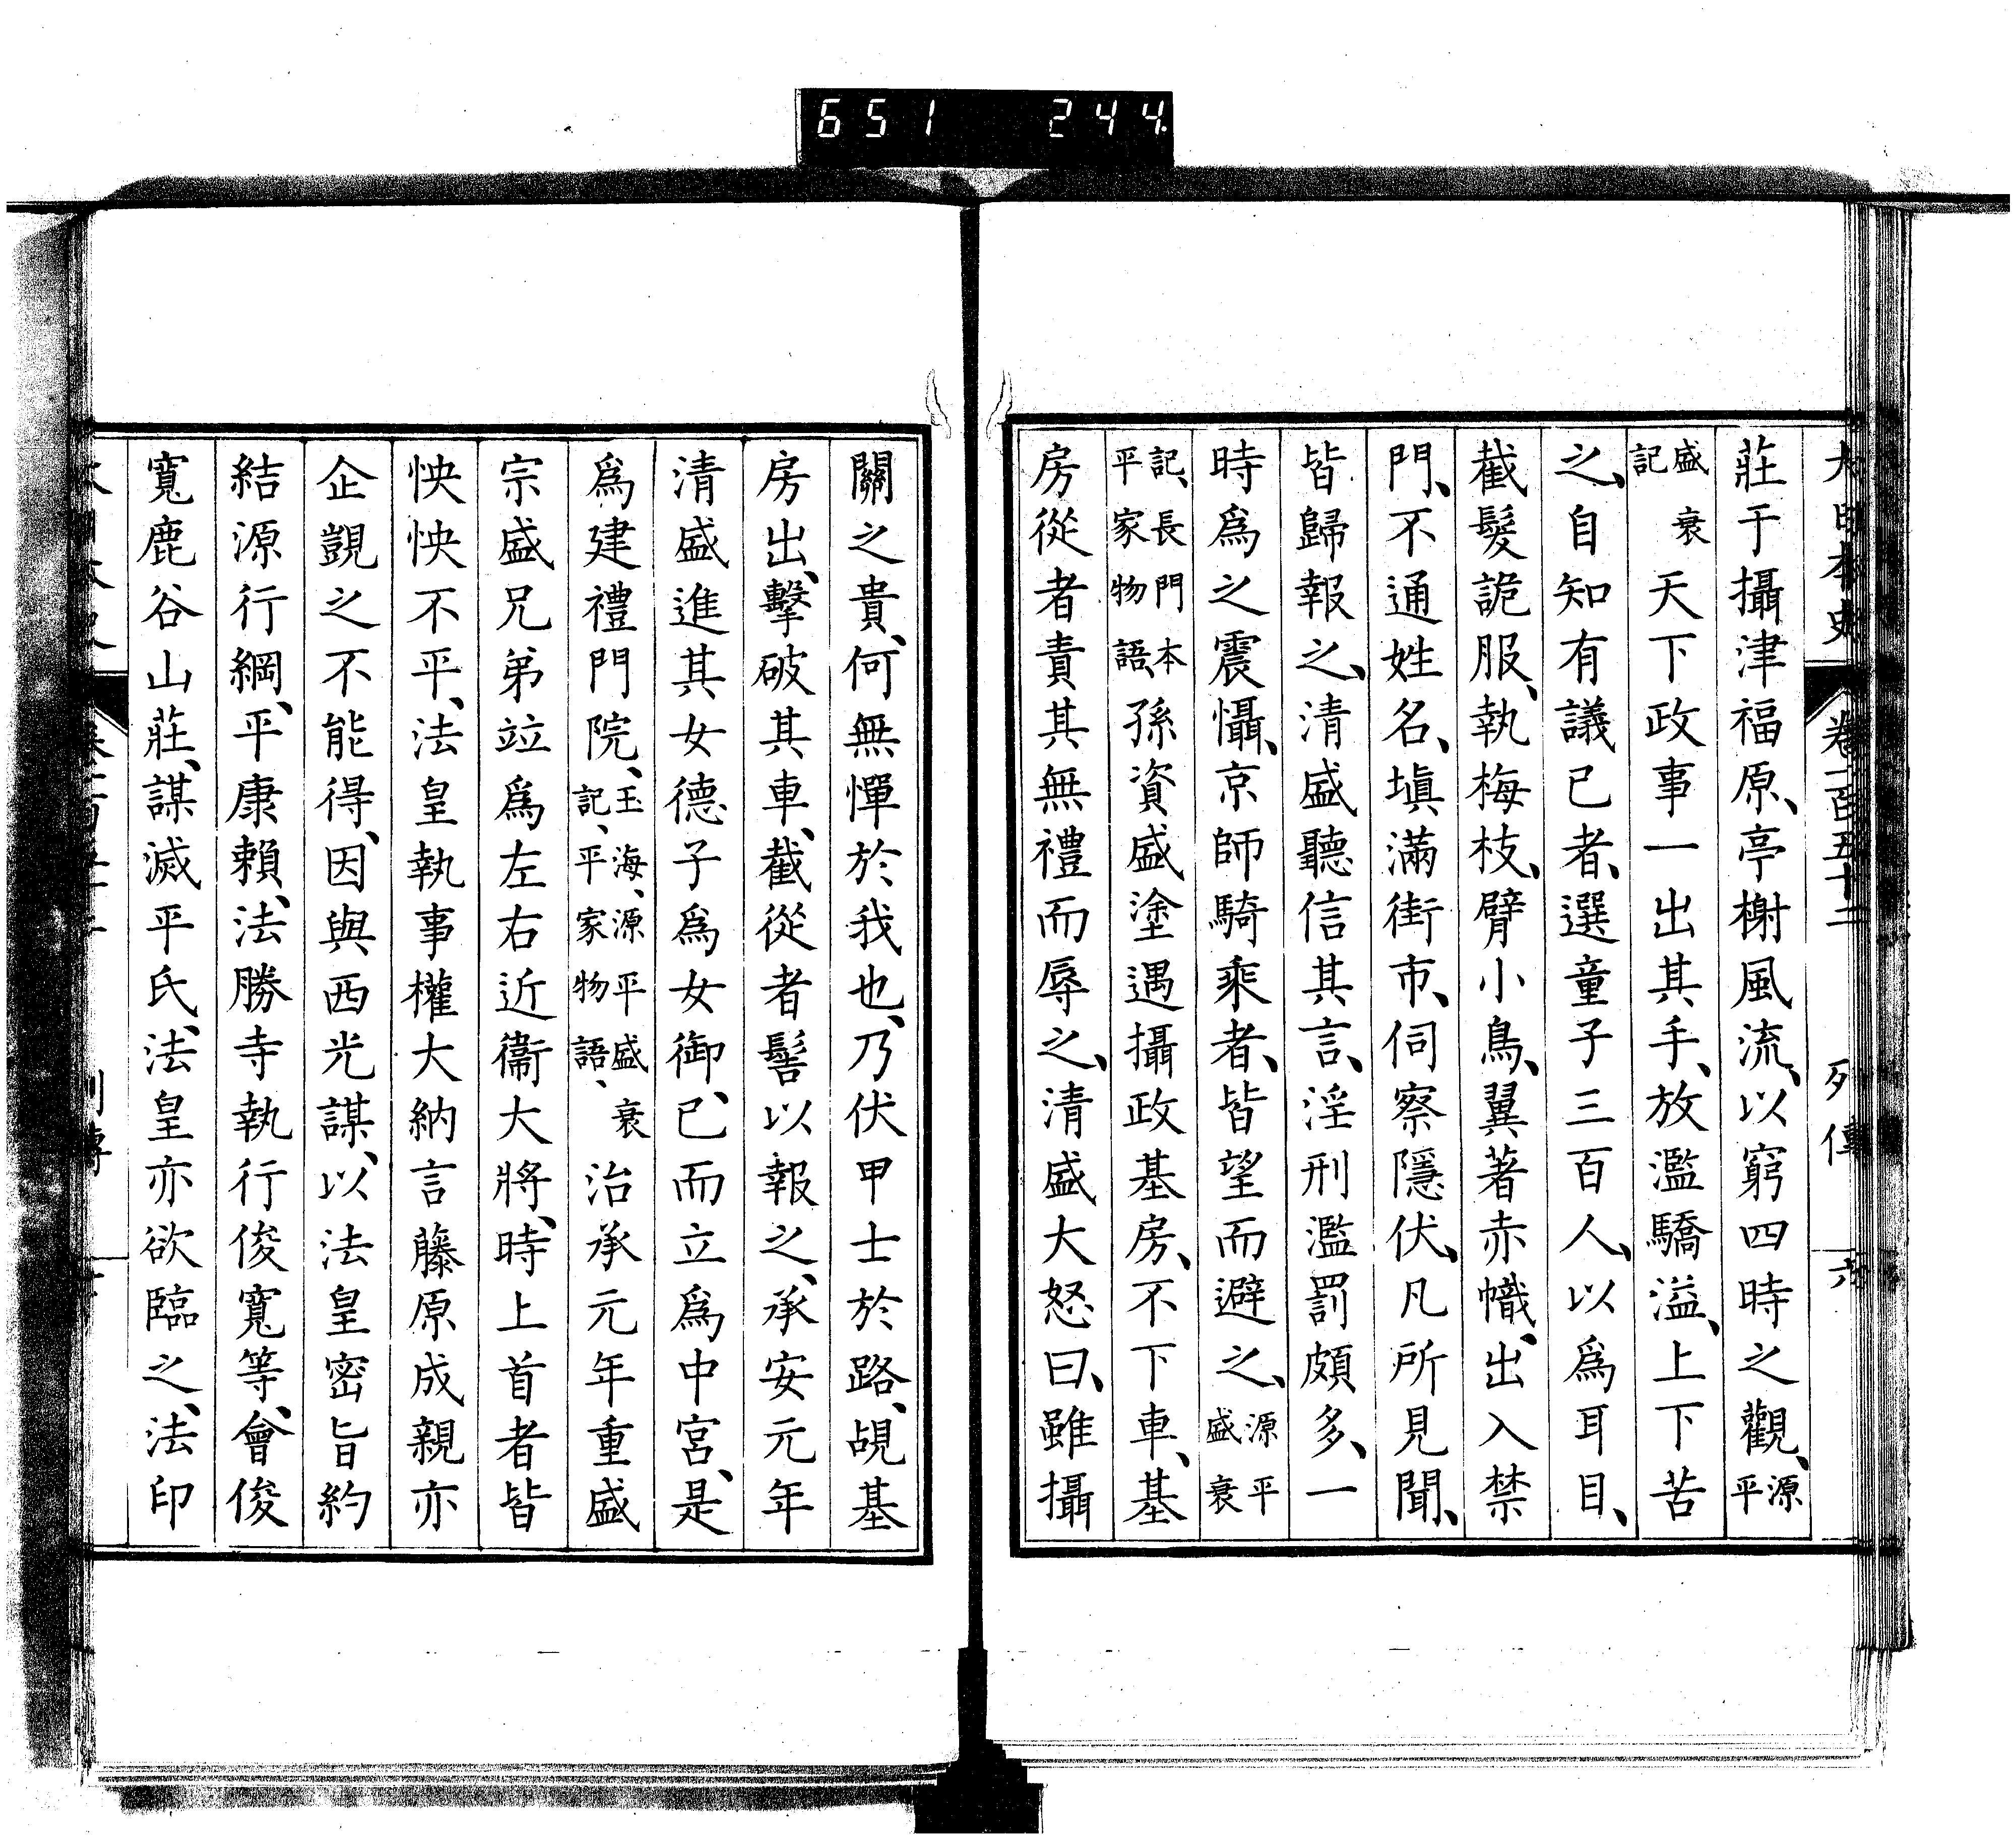 651 244
大日本史 卷一百五十二 列傳 六
莊于攝津福原、亭榭風流、以窮四時之觀、源平
盛衰記天下政事一出其手、放濫驕溢、上下苦
之、自知有議己者、選童子三百人、以爲耳目、
截髮詭服、執梅枝、臂小鳥、翼著赤幟、出入禁
門、不通姓名、塡滿街市、伺察隱伏、凡所見聞、
皆歸報之、清盛聽信其言、淫刑濫罰頗多、一
時爲之震懾、京師騎乘者、皆望而避之、源平盛衰
記、長門本平家物語、孫資盛塗遇攝政基房、不下車、基
房從者責其無禮而辱之、清盛大怒曰、雖攝
關之貴、何無憚於我也、乃伏甲士於路、覘基
房出、擊破其車、截從者髻以報之、承安元年
清盛進其女德子爲女御、已而立爲中宮、是
爲建禮門院、玉海、源平盛衰記、平家物語、治承元年重盛
宗盛兄弟竝爲左右近衞大將、時上首者皆
怏怏不平、法皇執事權大納言藤原成親亦
企覬之不能得、因與西光謀、以法皇密旨約
結源行綱、平康賴、法勝寺執行俊寬等、會俊
寬鹿谷山莊、謀滅平氏、法皇亦欲臨之、法印